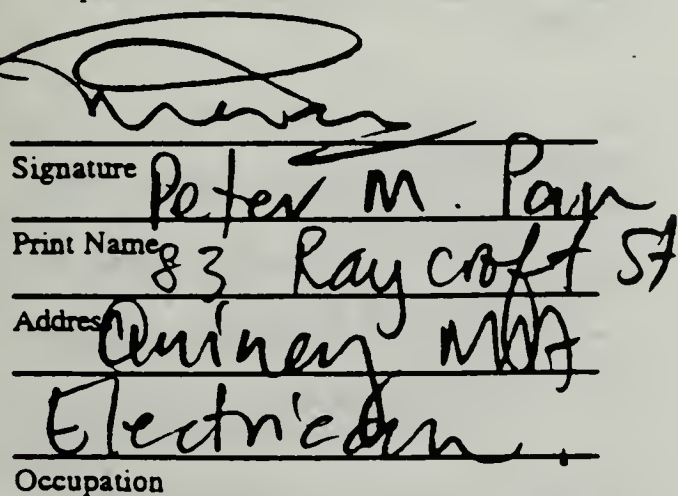 Signature
Peter M.
Print Name
83 Raycroft St
Address
Quincy MA
Electrician
Occupation